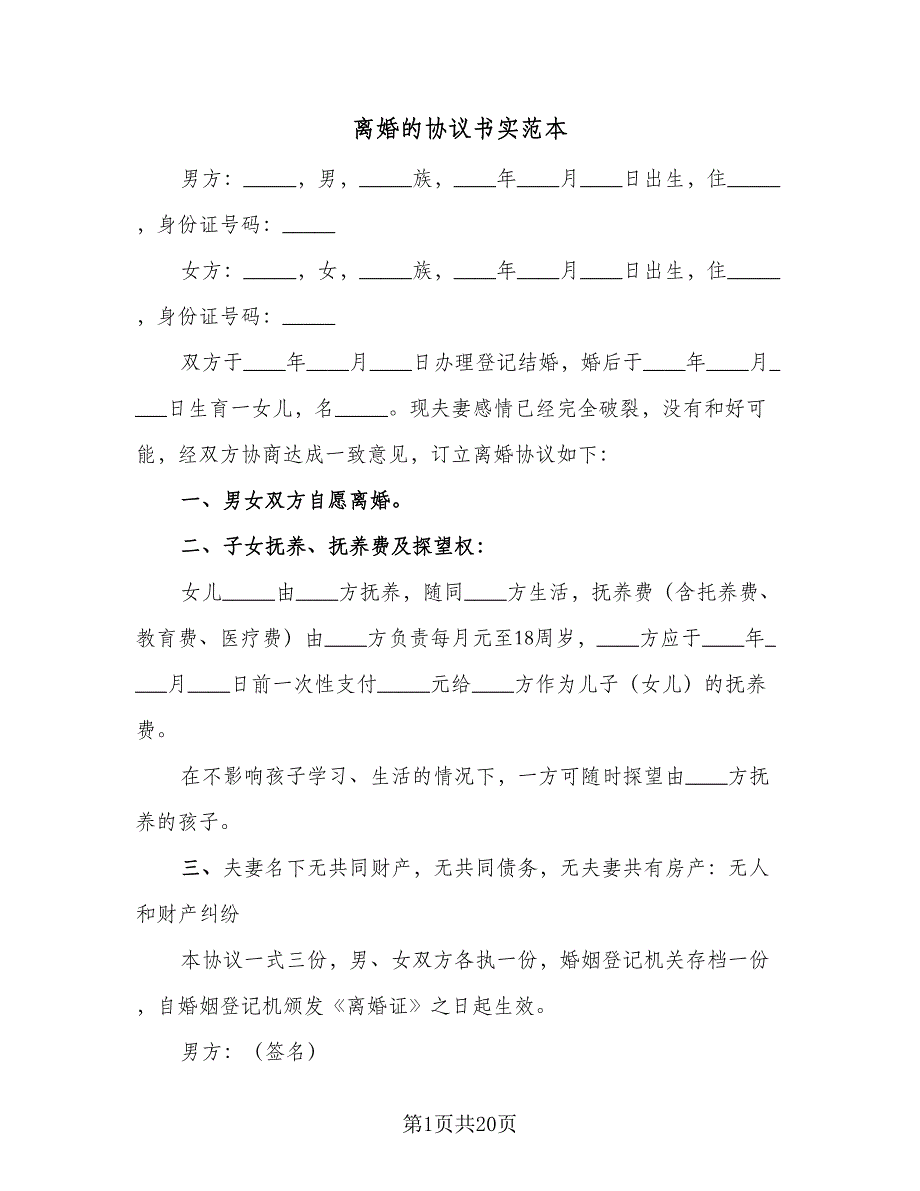 离婚的协议书实范本
男方：_____，男，_____族，____年____月____日出生，住_____
，身份证号码：_____
女方：_____，女，_____族，____年____月____日出生，住_____
，身份证号码：_____
双方于____年____月____日办理登记结婚，婚后于____年____月_
___日生育一女儿，名_____。现夫妻感情已经完全破裂，没有和好可
能，经双方协商达成一致意见，订立离婚协议如下：
一、男女双方自愿离婚。
二、子女抚养、抚养费及探望权：
女儿_____由____方抚养，随同____方生活，抚养费（含托养费、
教育费、医疗费）由____方负责每月元至18周岁，____方应于____年_
___月____日前一次性支付_____元给____方作为儿子（女儿）的抚养
费。
在不影响孩子学习、生活的情况下，一方可随时探望由____方抚
养的孩子。
三、夫妻名下无共同财产，无共同债务，无夫妻共有房产：无人
和财产纠纷
本协议一式三份，男、女双方各执一份，婚姻登记机关存档一份
，自婚姻登记机颁发《离婚证》之日起生效。
男方：（签名）
第1页共20页